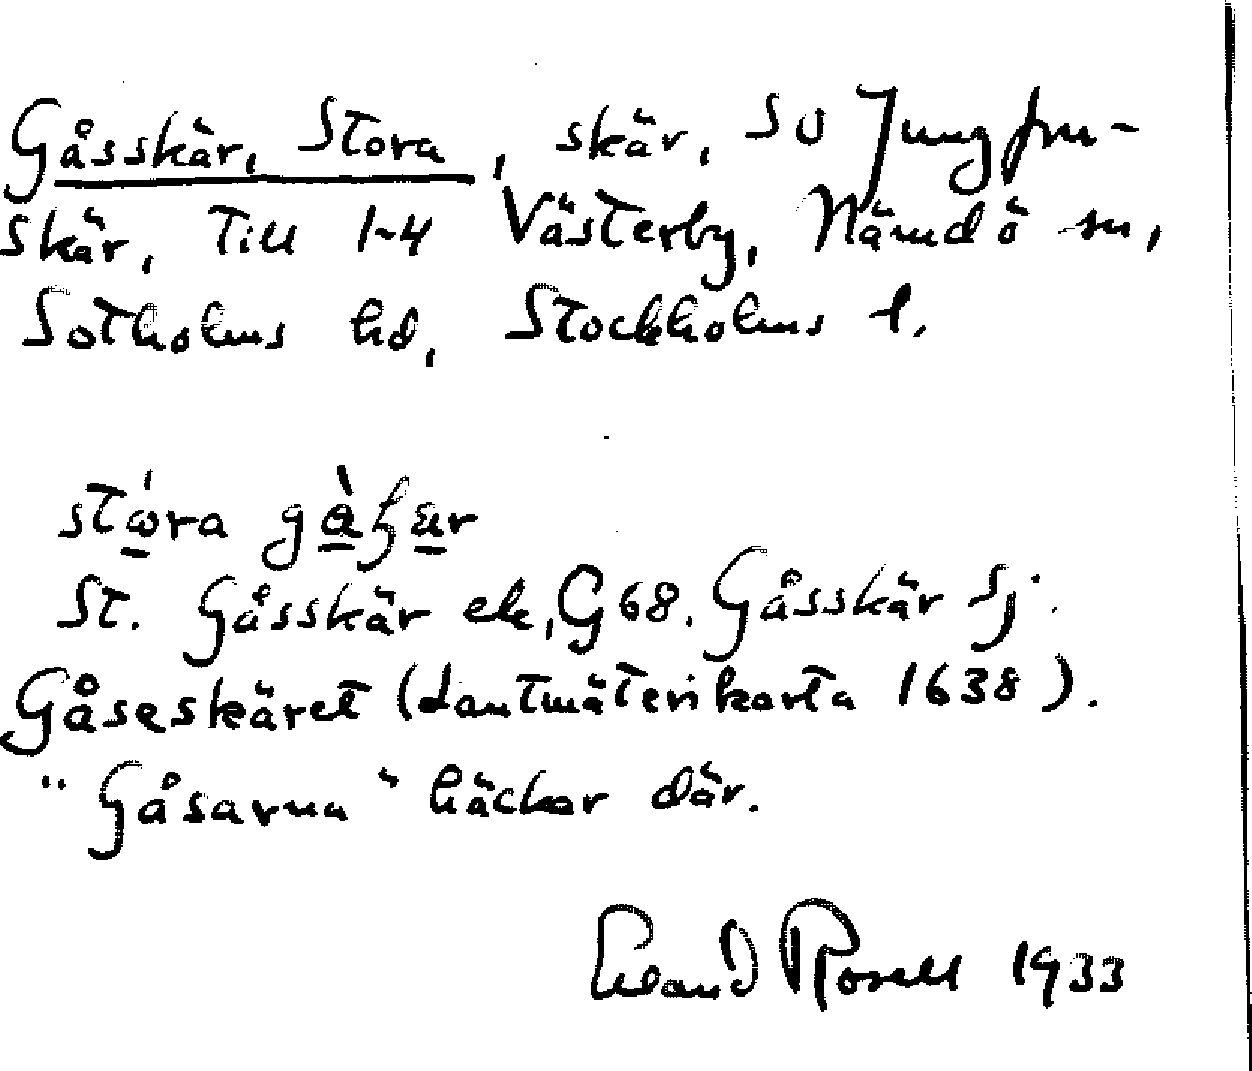 Gåsskär, Stora, skär, SO Jungfru-
skär, Till 1-4 Västerby, Nämdö sn,
Sotholms hd, Stockholms l.
stώ̲ra
St. Gåsskär ek, G 68. Gåsskär sj.
Gåseskäret (Lantmäterikarta 1638).
"Gåsarna" häckar där.
Erland Rosell 1933